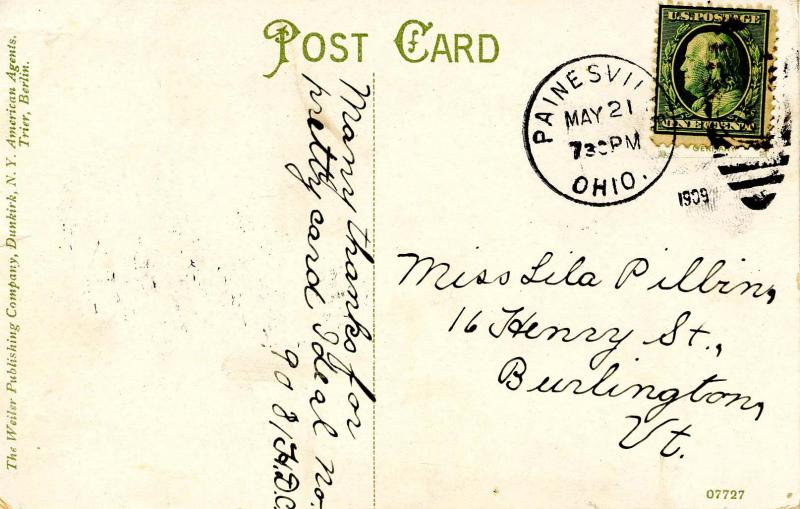 POST CARD
The Weiler Publishing Company, Dunkirk, N. Y. American Agents.
Trier, Berlin.
Many thanks for
pretty card Ideal No.
9081 H.D.C.
U.S. POSTAGE
ONE CENT
PAINESVIL
MAY 21
730PM
OHIO.
1909
Miss Lila Pillbin,
16 Henry St.,
Burlington,
Vt.
07727